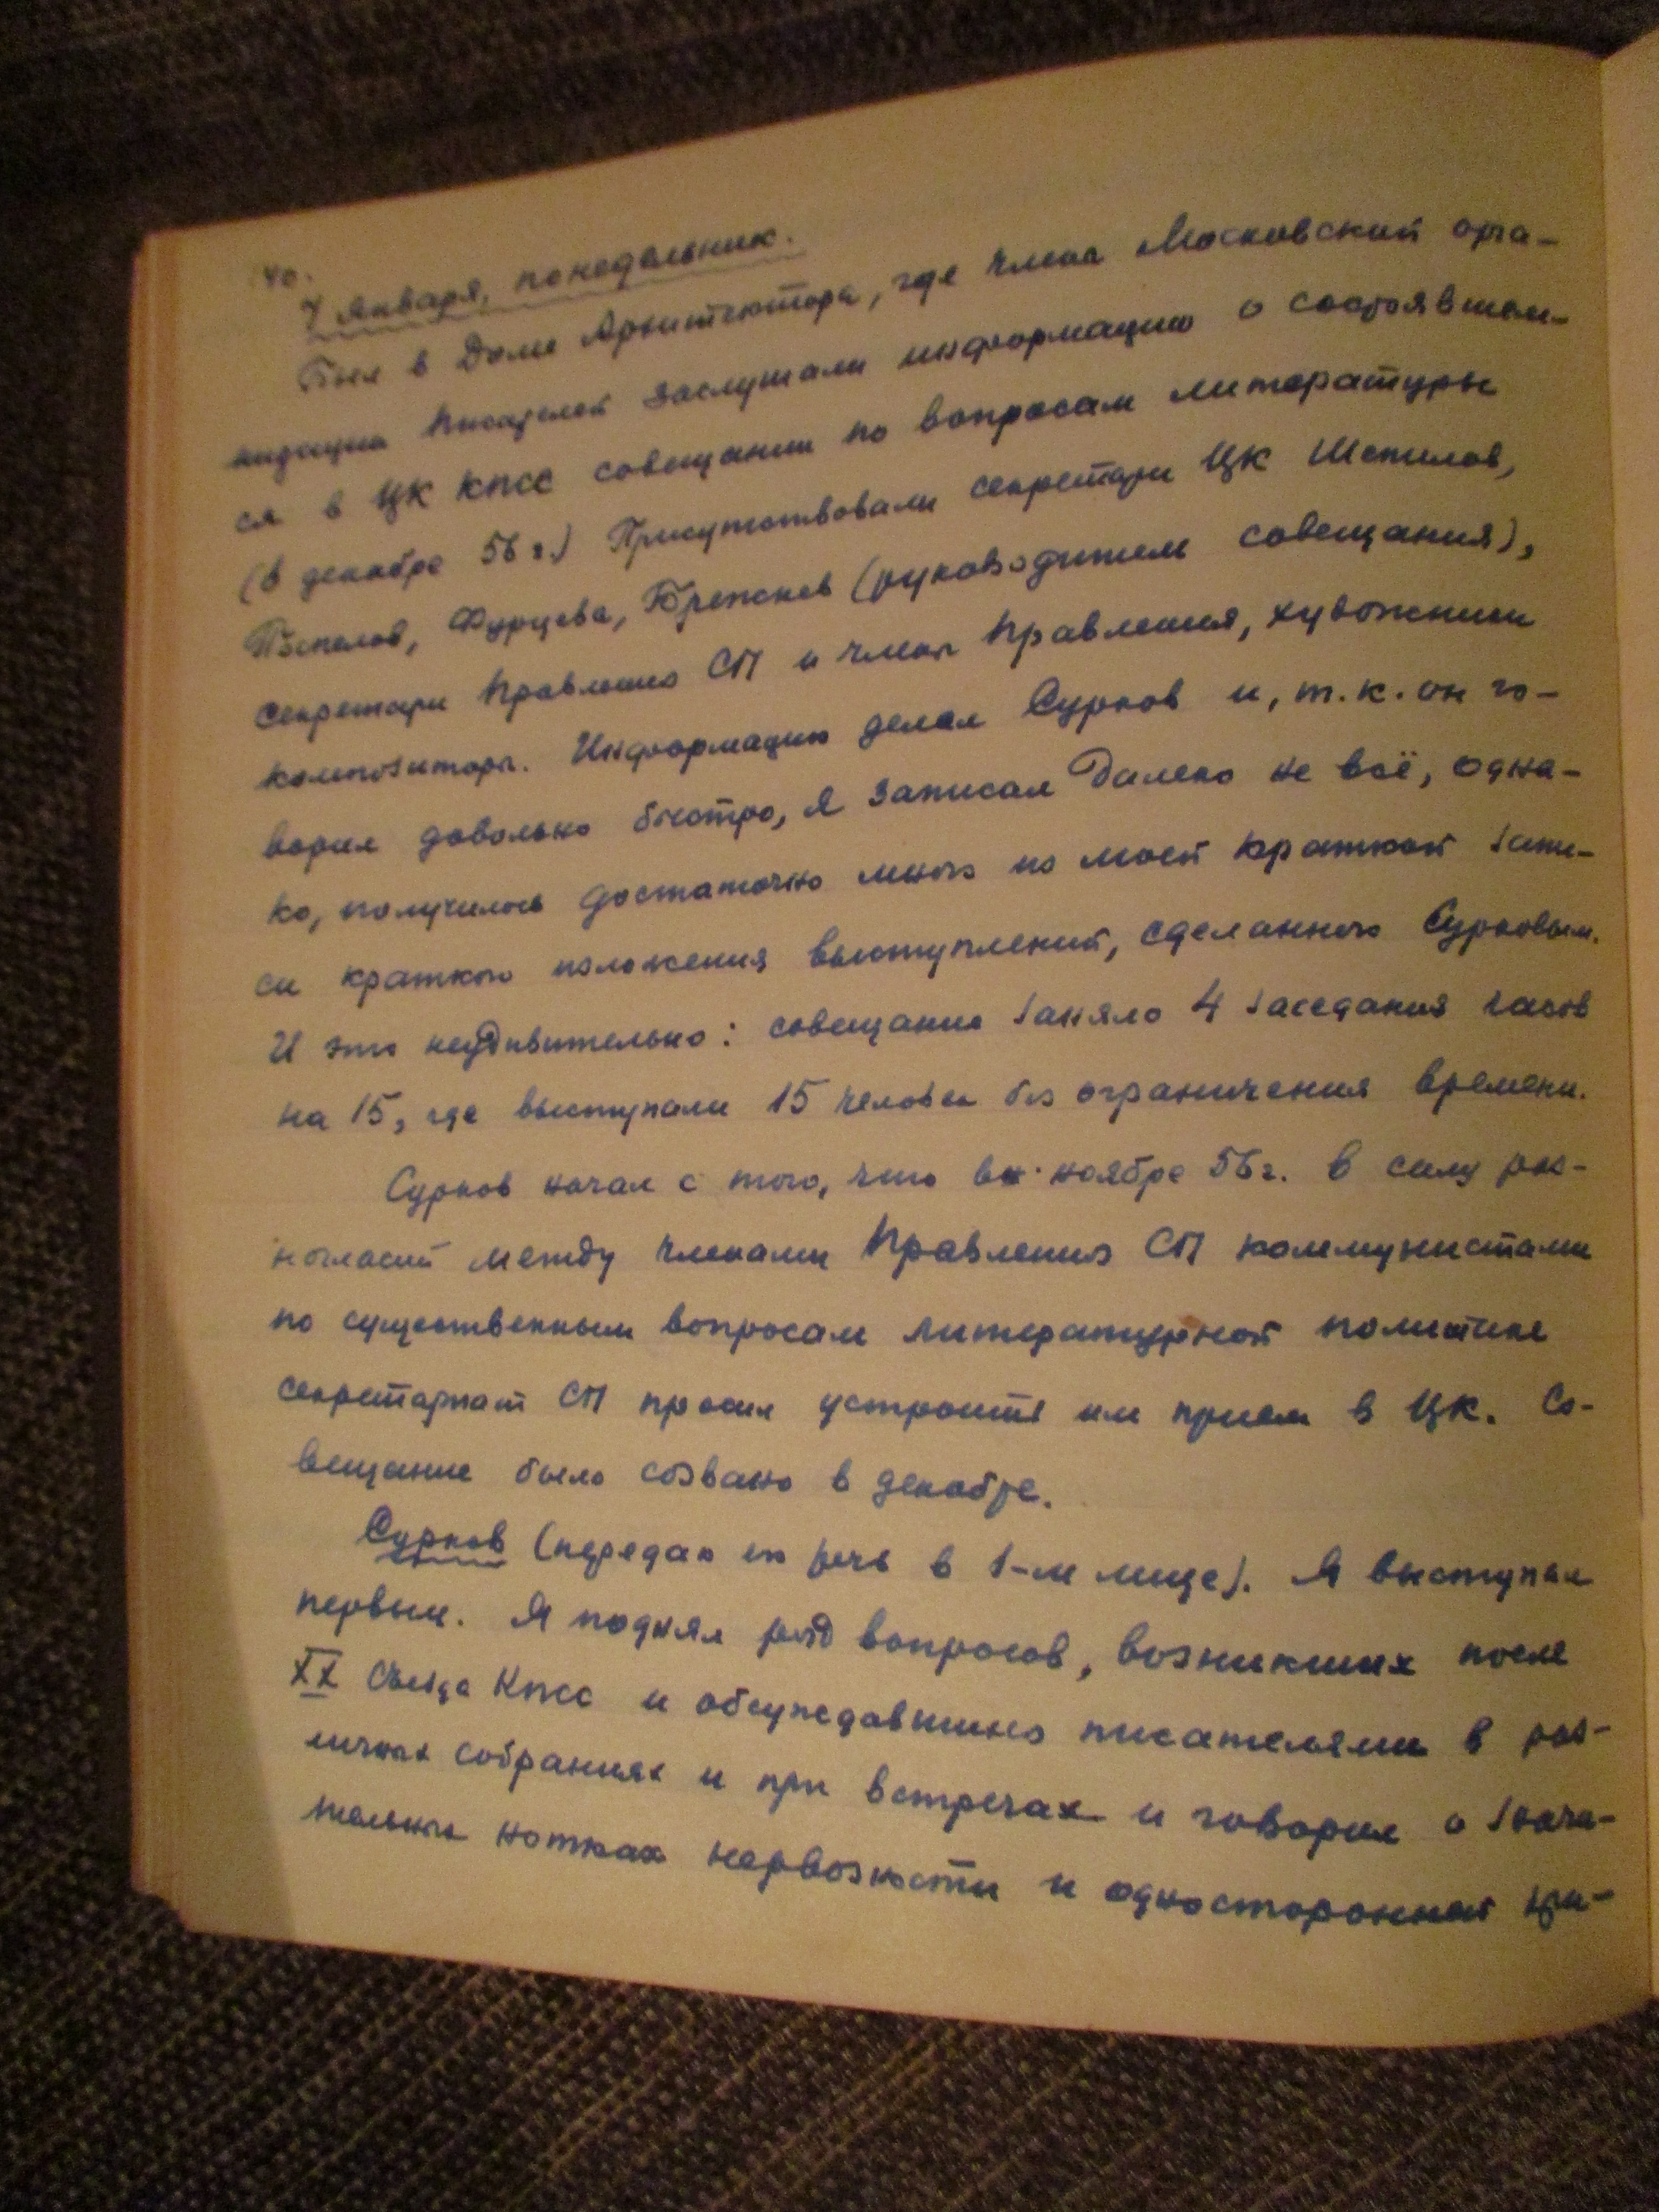 40.
7 января, понедельник.
Был в Доме Архитектора, где члены Московской орга-
низации писателей заслушали информацию о состоявшем-
ся в ЦК КПСС совещании по вопросам литературы
(в декабре 56 г.) Присутствовали секретари ЦК Шепилов,
Поспелов, Фурцева, Брежнев (руководители совещания),
секретари Правления СП и члены Правления, художники
композиторы. Информацию делал Сурков и, т.к. он го-
ворил довольно быстро, я записал далеко не всё, одна-
ко, получилось достаточно много по моей краткой запи-
си краткого изложения выступлений, сделанного Сурковым.
И это неудивительно: совещание заняло 4 заседания часов
на 15, где выступали 15 человек без ограничения времени.
Сурков начал с того, что в ноябре 56 г. в силу раз-
ногласий между членами Правления СП коммунистами
по существенным вопросам литературной политики
секретариат СП просил устроить им прием в ЦК. Со-
вещание было созвано в декабре.
Сурков (передаю его речь в 1-м лице). Я выступал
первым. Я поднял ряд вопросов, возникших после
XX съезда КПСС и обсуждавшихся писателями в раз-
личных собраниях и при встречах и говорил о значи-
тельных нотках нервозности и односторонней кри-